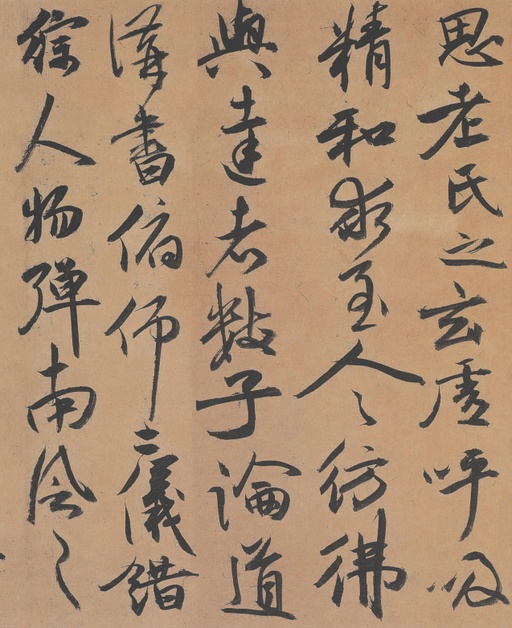 思老氏之玄虛呼吸
精和求至人之彷彿
與達者數子論道
講書俯仰二儀錯
綜人物彈南風之